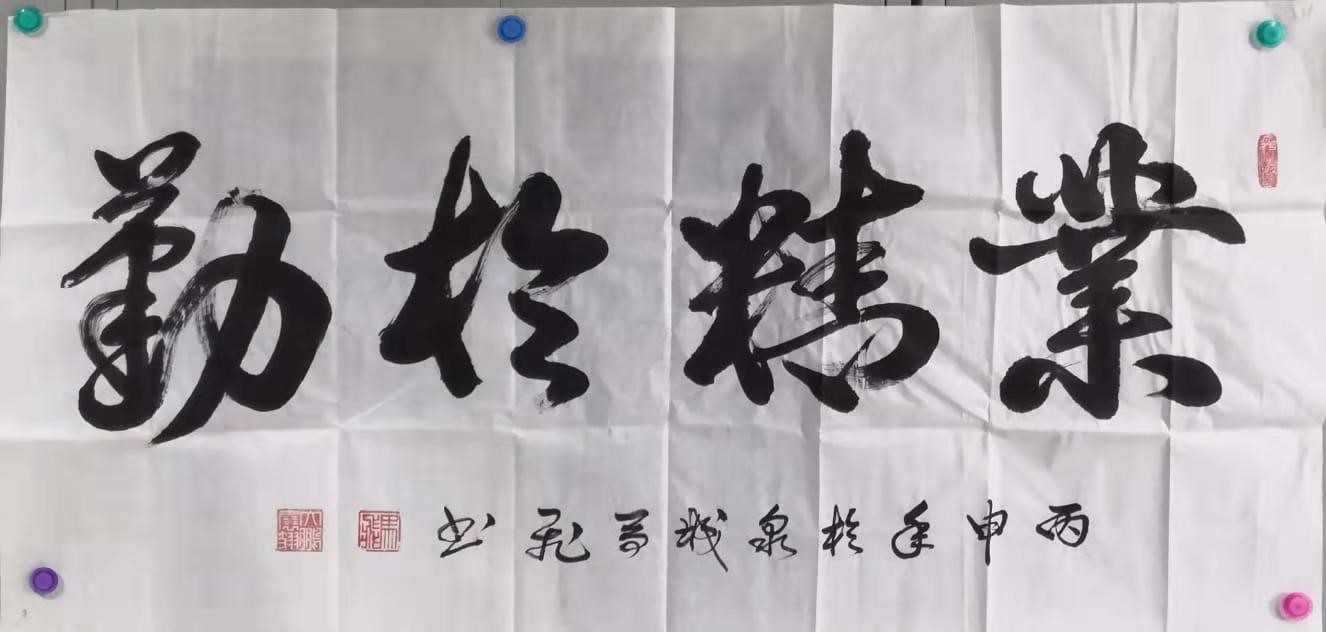 業精於勤
丙申年於泉城高飛书